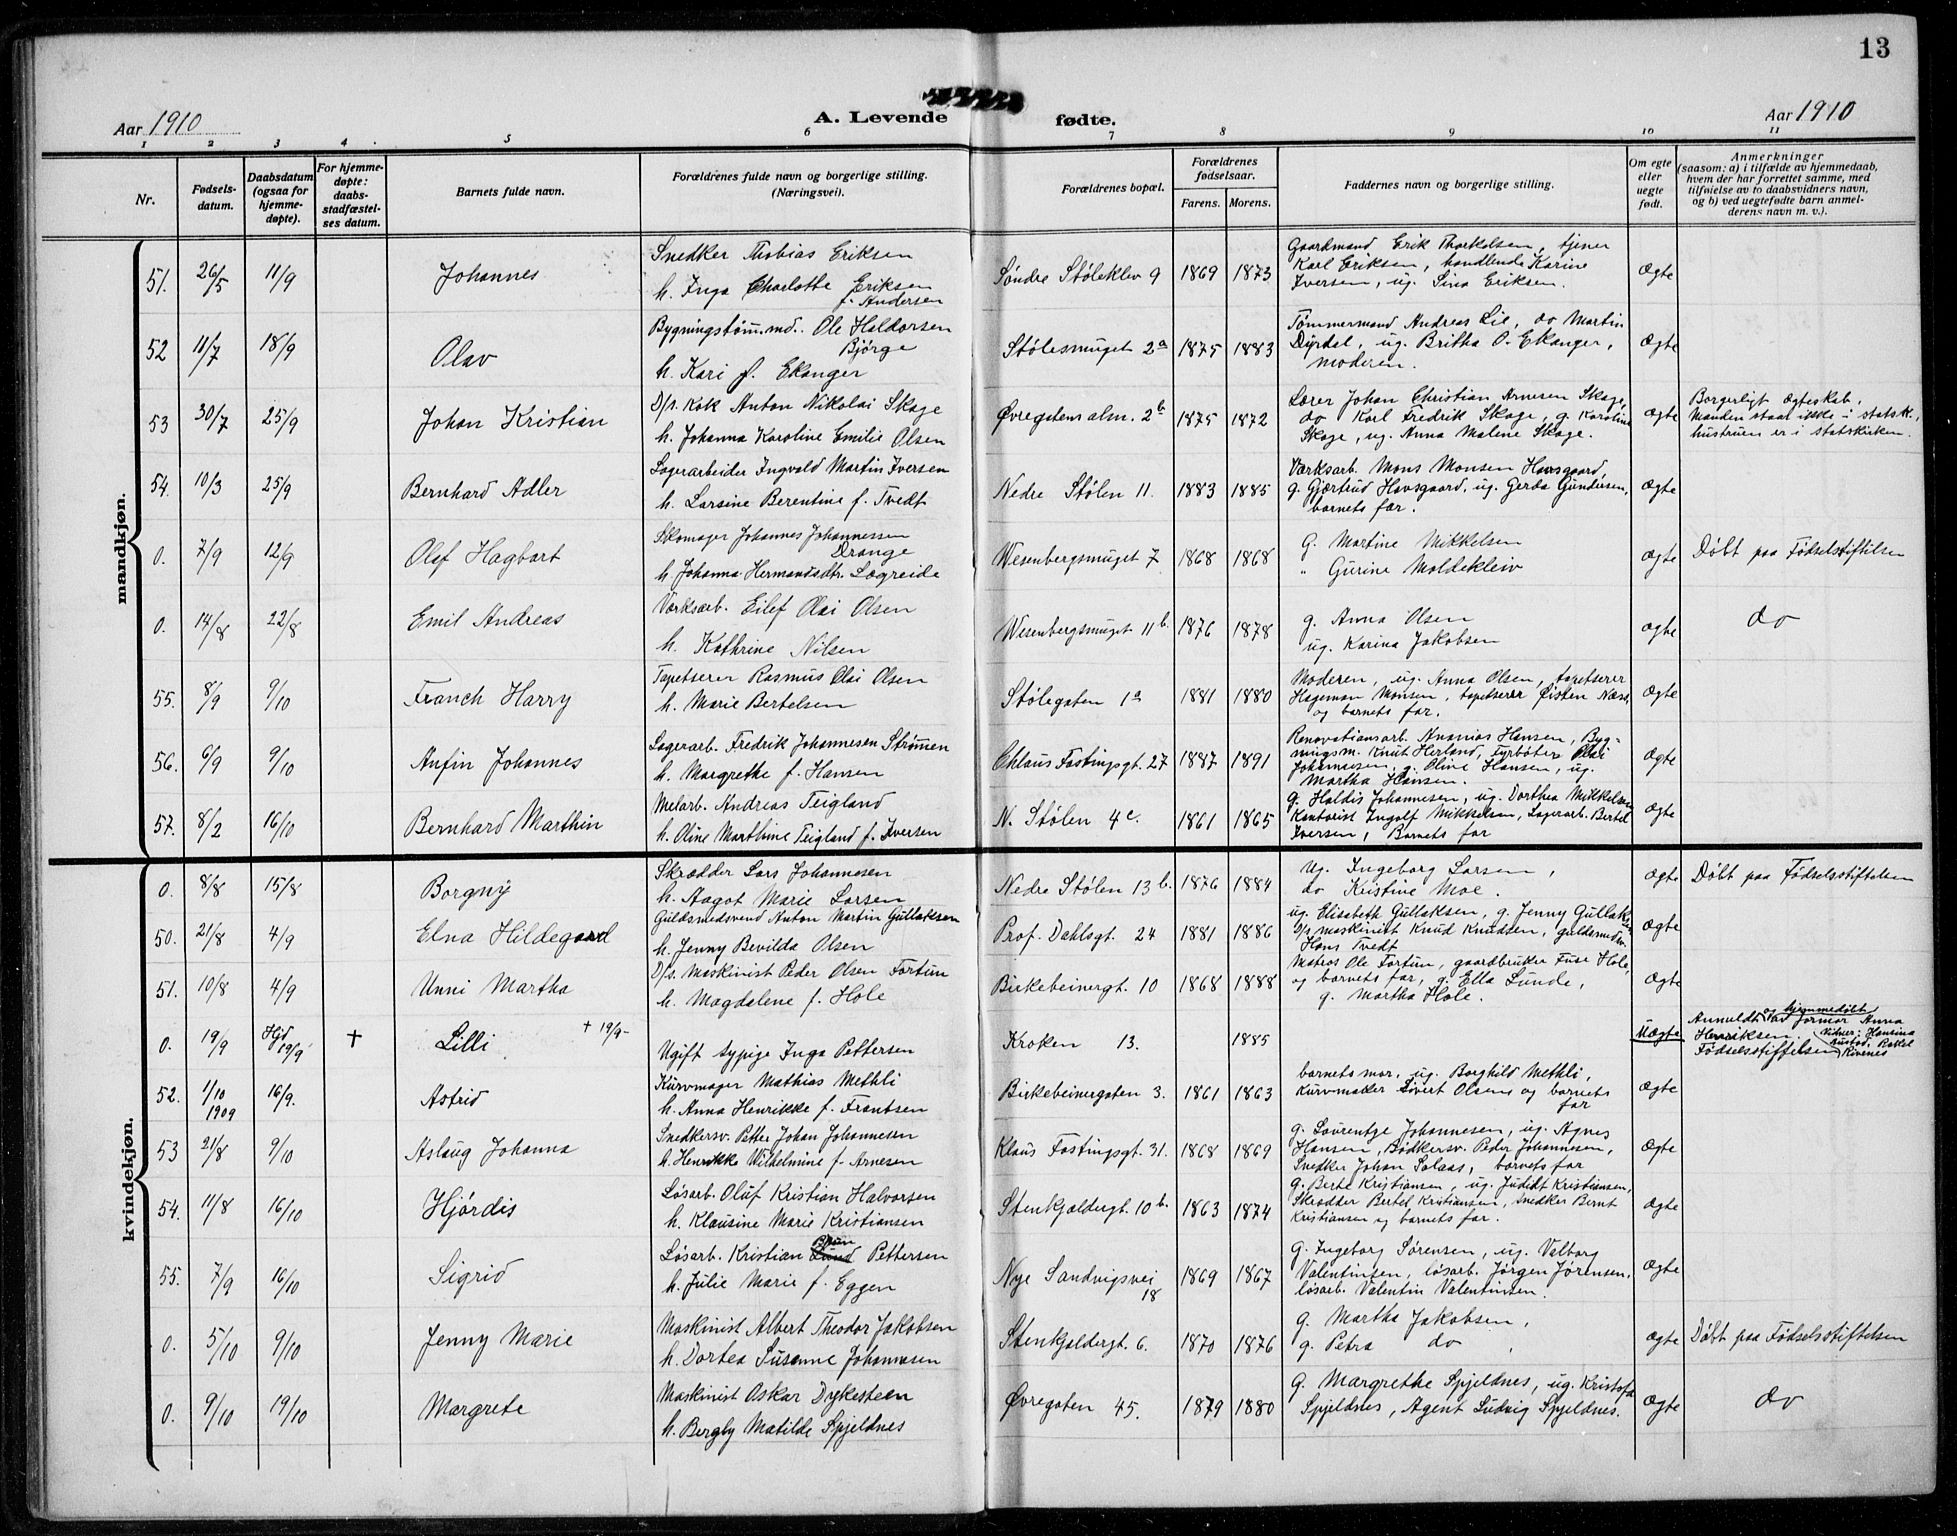 13
Aar 1910
A. Levende fødte.
Aar 1910
1 2 3 4 5 6 7 8 9 10 11
Nr.
Fødsels-
datum.
Daabsdatum
(ogsaa for
hjemme-
døpte).
For hjemme-
døpte:
daabs-
stadfæstel-
ses datum.
Barnets fulde navn.
Forældrenes fulde navn og borgerlige stilling.
(Næringsvei).
Forældrenes bopæl.
Forældrenes
fødselsaar.
Farens. Morens.
Faddernes navn og borgerlige stilling.
Om egte
eller
uegte
født.
Anmerkninger
(saasom: a) i tilfælde av hjemmedaab,
hvem der har forrettet samme, med
tilføielse av to daabsvidners navn,
og b) ved uegtefødte barn anmel-
derens navn m. v.).
mandkjøn.
51. 26/5 11/9 Johannes
Snedker Thobias Eriksen
h. Inga Charlotte Eriksen
f. Andersen
Søndre Støleklev 9 1869 1873
Gaardmand Erik Thorkelsen, tjener
Karl Eriksen, handlende Karine
Iversen, ug. Sina Eriksen.
Ægte
52 11/7 18/9 Olav
Bygningstøm.md. Ole Haldorsen
Bjørge
h. Kari f. Ekanger
Stølesmuget 2a 1875 1883
Tømmermand Andreas Lie, do Martin
Dyrdal, ug. Britha O. Ekanger,
moderen.
Ægte
53 30/7 25/9 Johan Kristian
D/s. Kok Anton Nikolai Skage
h. Johanna Karoline Emilie Olsen
Øvregatens alm. 2b 1875 1872
Lærer Johan Christian Arnesen Skage,
do Karl Fredrik Skage, g. Karoline
Skage, ug. Anna Malene Skage.
Ægte
Borgerligt Ægteskab.
Manden staar ikke i statsk.,
hustruen er i statskirken.
54. 10/3 25/9 Bernhard Adler
Lagerarbeider Ingvald Martin Iversen
h. Larsine Berentine f. Tvedt
Nedre Stølen 11. 1883 1885
Værksarb. Mons Monsen Havsgaard,
g. Gjærtrud Havsgaard, ug. Gerda Gundersen,
barnets far.
Ægte
0. 7/9 12/9 Olaf Hagbart
Skomager Johannes Johannessen
Drange
h. Johanna Hermandsdtr. Lægreide
Wesenbergsmuget 7 1868 1868
G. Martine Mikkelsen
" Gurine Moldekleiv
Ægte
Døbt paa Fødselstiftelsen
0. 14/8 22/8 Emil Andreas
Værksarb. Eilef Olai Olsen
h. Kathrine Nilsen
Wesenbergsmuget 11b. 1876 1878
g. Anna Olsen
ug. Karina Jakobsen
Ægte
do
55. 8/9 9/10 Franch Harry
Tapetserer Rasmus Olai Olsen
h. Marie Bertelsen
Stølegaten 1a 1881 1880
Moderen, ug. Anna Olsen, tapetserer
Hageman Monsen, tapetserer Øisten Næss,
og barnets far.
Ægte
56. 6/9 9/10 Anfin Johannes
Lagerarb. Fredrik Johannesen Strømen
h. Margrethe f. Hansen
Chlaus Fastingsgt. 27 1887 1891
Renovationsarb. Ananias Hansen, Byg-
ningsm. Knut Herland, Fyrbøter Olai
Johannesen, g. Oline Hansen, ug.
Martha Hansen.
Ægte
57. 8/2 16/10 Bernhard Marthin
Melarb. Andreas Teigland
h. Oline Marthine Teigland f. Iversen
N. Stølen 4c. 1861 1865
g. Haldis Johannesen, ug. Dorthea Mikkelsen
Kontorist Ingolf Mikkelsen, Lagerarb. Bertel
Iversen, Barnets far
Ægte
kvindekjøn.
0. 8/8 15/8 Borgny
Skrædder Lars Johannesen
h. Aagot Marie Larsen
Nedre Stølen 13b. 1876 1884
Ug. Ingeborg Larsen,
do Kristine Moe.
Ægte
Døbt paa Fødselsstiftelsen
50. 21/8 4/9 Elna Hildegaard
Guldsmedsvend Anton Martin Gullaksen
h. Jenny Bevilda Olsen
Prof. Dahlsgt. 24 1881 1886
ug. Elisabeth Gullaksen, g. Jenny Gullaksen
D/s maskinist Knud Knudsen, guldsmedsv.
Hans Tvedt
Ægte
51. 10/8 4/9 Unni Martha
D/s. Maskinist Peder Olsen Fortun
h. Magdalene f. Hole
Birkebeinergt. 10 1868 1888
Matros Ole Fortun, gaardbruker Fuse Hole,
og barnets far, g. Ella Lunde,
g. Martha Hole.
Ægte
0. 19/9 Hjd 19/9 † Lilli † 19/9-
Ugift sypige Inga Pettersen
Kroken 13. 1885
Uægte
Anmeldt og hjemmedøbt
av Jormor Anna
Henriksen. Vidner: Hansina
Rustad, Rakel
Fødselsstiftelsen Rivenes
52. 1/10 1909 16/9. Astrid
Kurvmager Mathias Methli
h. Anna Henrikke f. Frantsen
Birkebeinergaten 3. 1861 1863
barnets mor, ug. Borghild Methli,
Kurvmaker Sivert Olsen og barnets
far
Ægte
53 21/8 9/10 Aslaug Johanna
Snedkersv. Petter Johan Johannesen
h. Henrikke Wilhelmine f. Arnesen
Klaus Fastingsgt. 31. 1868 1869
g. Laurentze Johannesen, ug. Agnes
Hansen, Bødkersv. Peder Johannesen,
Snedker Johan Salaas, barnets far
Ægte
54. 11/8 16/10 Hjørdis
Løsarb. Oluf Kristian Halvorsen
h. Klausine Marie Kristiansen
Stenkjeldergt. 10b. 1863 1874
g. Berte Kristiansen, ug. Judidt Kristiansen,
Skrædder Bertel Kristiansen, snedker Bernt
Kristiansen og barnets far.
Ægte
55. 7/9 16/10 Sigrid
Løsarb. Kristian Lund Pettersen
h. Julie Marie f. Eggen
Nye Sandvigsvei
18
1869 1867
g. Ingeborg Sørensen, ug. Valborg
Valentinsen, løsarb. Jørgen Jørensen,
løsarb. Valentin Valentinsen.
Ægte
0. 5/10 9/10 Jenny Marie
Maskinist Albert Theodor Jakobsen
h. Dortea Susanne Johannesen
Stenkjeldergt. 6. 1870 1876
g. Martha Jakobsen,
g. Petra do
Ægte
Døbt paa Fødselsstiftelsen
0. 9/10 19/10 Margrete
Maskinist Oskar Dykesteen
h. Bergly Matilde Spjeldnes
Øvregaten 45. 1879 1880
g. Margrethe Spjeldnes, ug. Kristofa
Spjeldnes, Agent Ludvig Spjeldnes.
Ægte
do